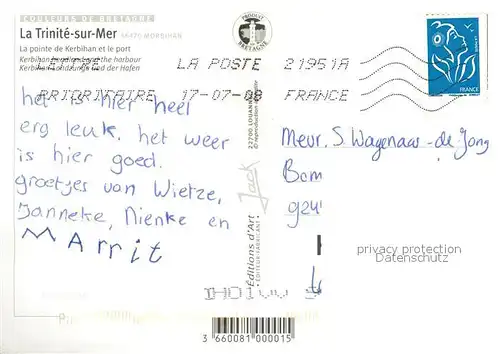 COULEURS DE BRETAGNE
La Trinité-sur-Mer 56470 MORBIHAN
La pointe de Kerbihan et le port
Kerbihan headland and the harbour
Kerbihan Landzunge und der Hafen
PRODUIT EN BRETAGNE
LETTRE LA POSTE 21951A
PRIORITAIRE 17-07-08 FRANCE
FRANCE
het is hier heel
erg leuk. het weer
is hier goed.
groetjes van Wietze,
Janneke, Nienke en
Marrit
Mevr. S. Wagenaar-de Jong
Bam
924
Jack
Éditions d'Art
ÉDITEUR-FABRICANT
© reproduction interdite
privacy protection
Datenschutz
3 660081 000015